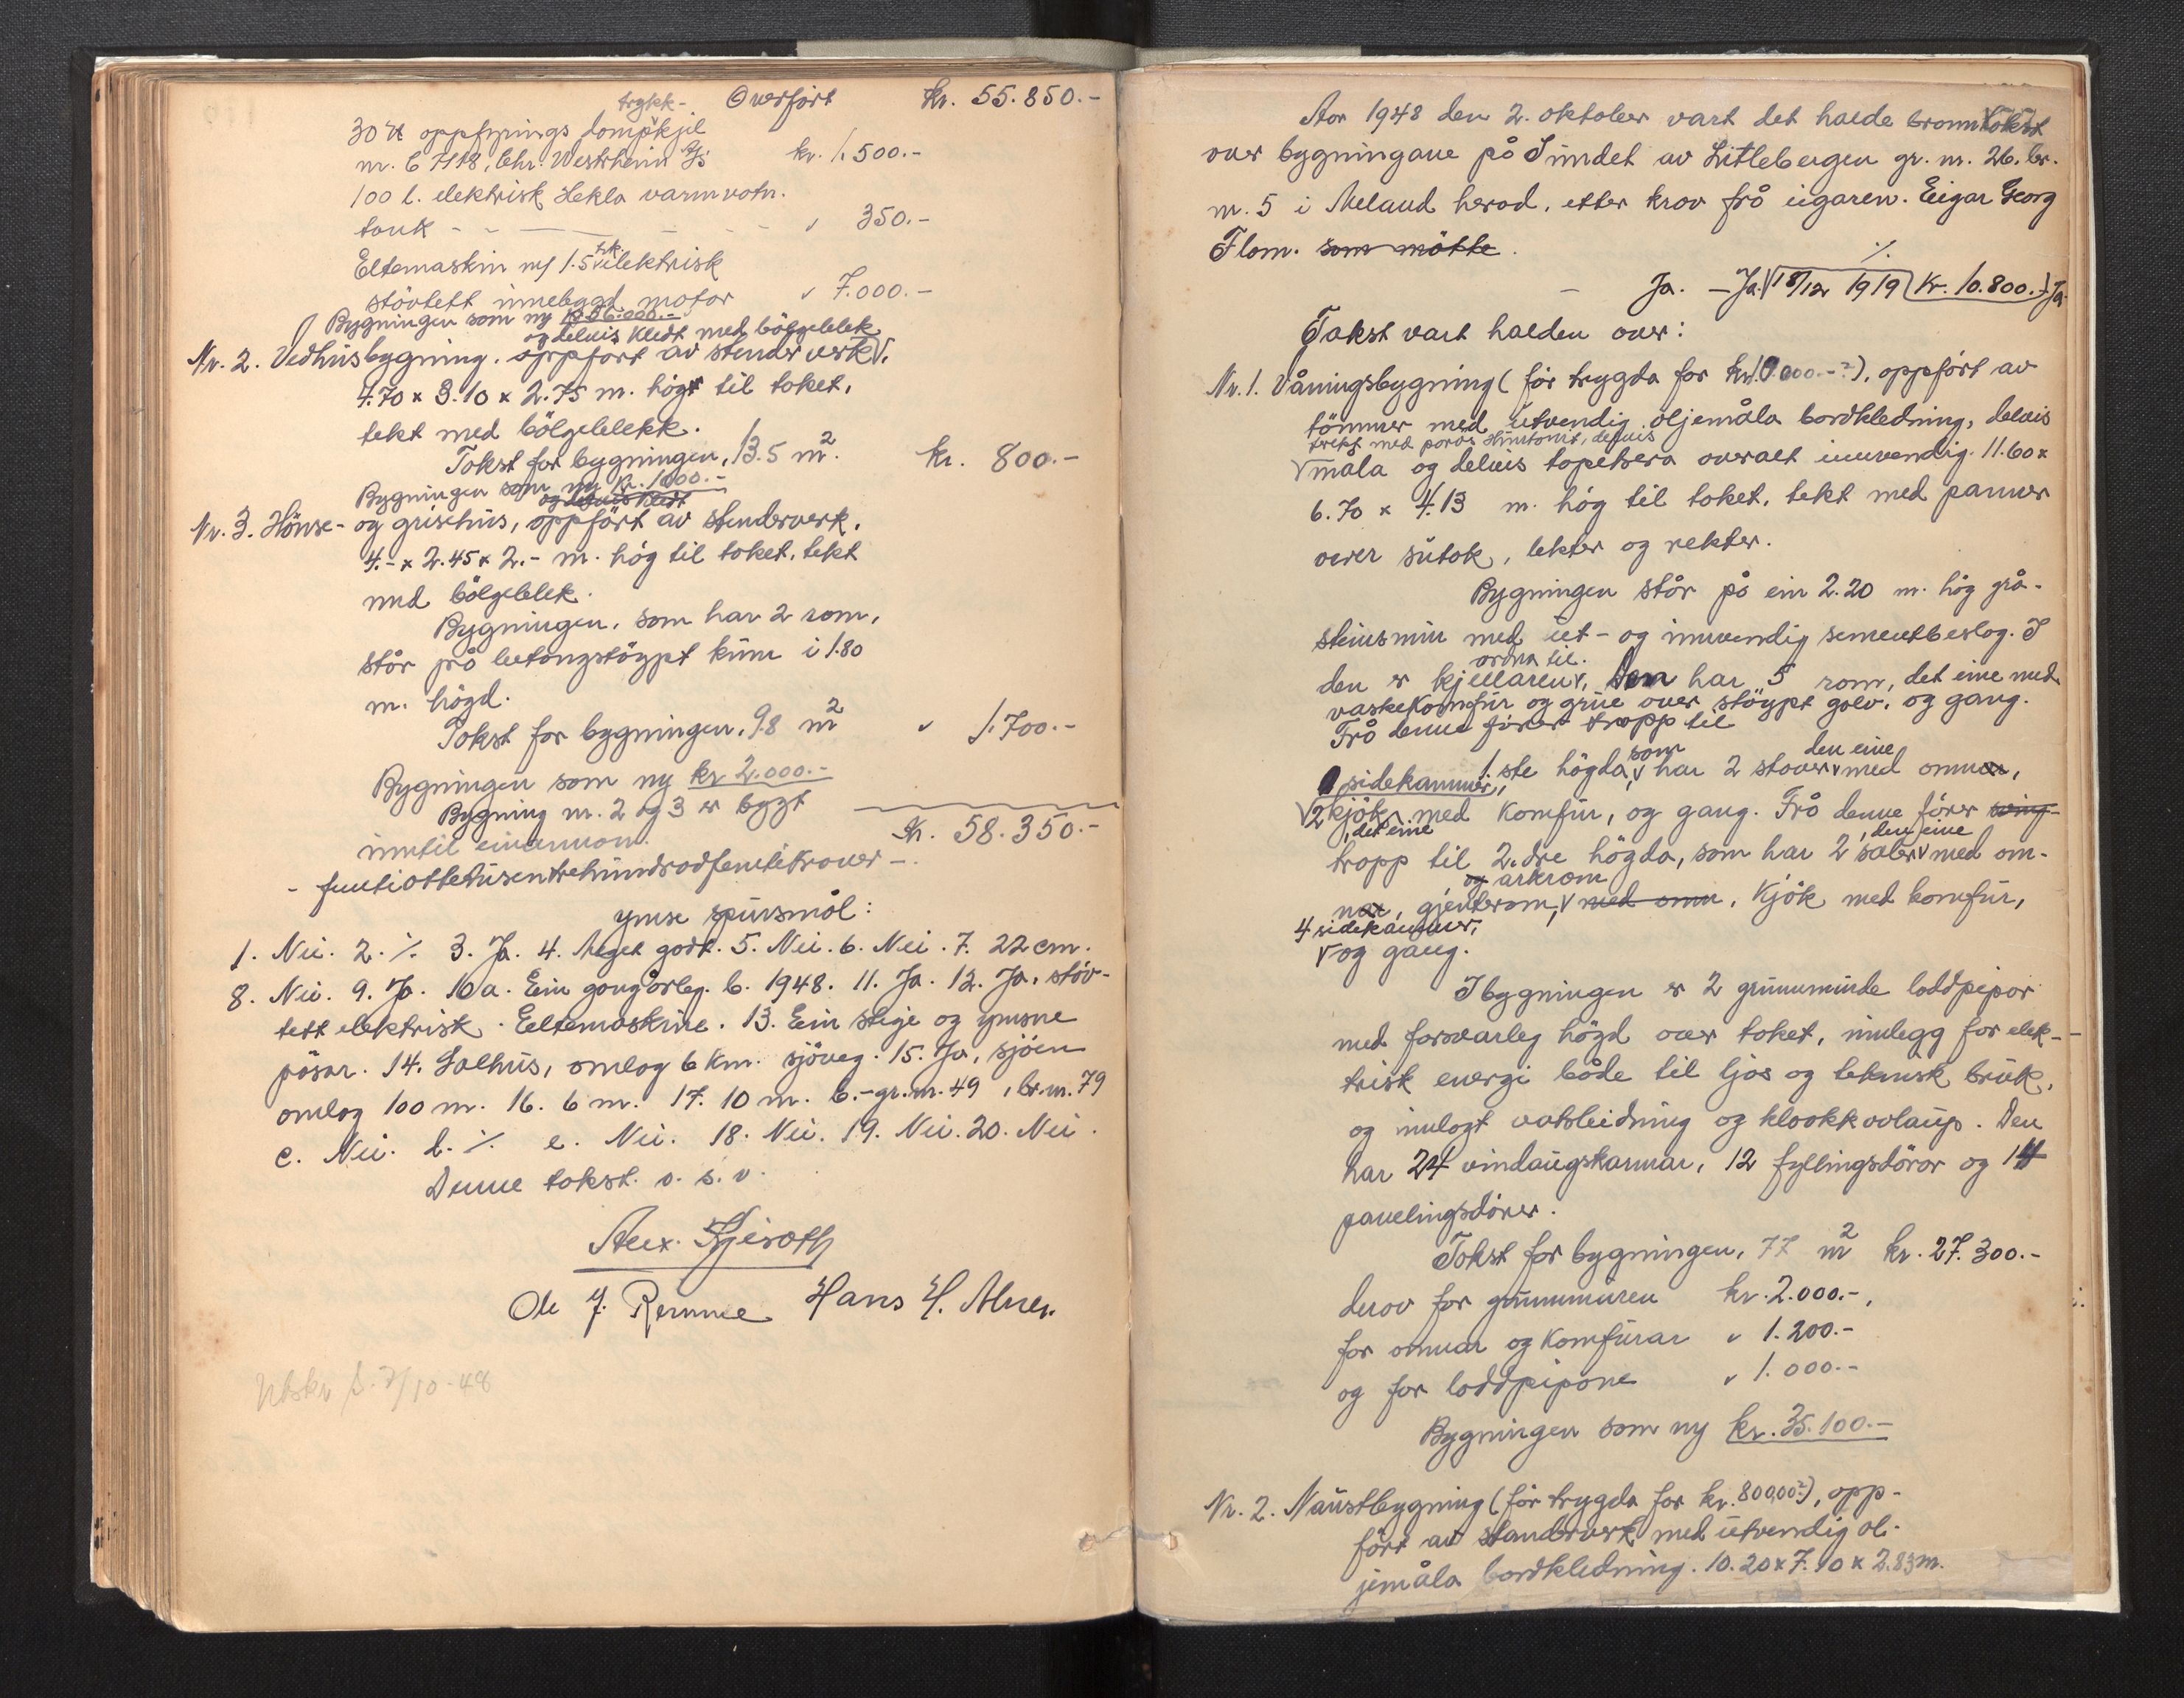 Overført kr. 55.850.-
trykk-
30 oppfyrings dampkjel
nr. 6 7118, lhr. Westrheim kr. 1.500.-
100 l. elektrisk Hekla varmvatn.
tank - - - - " 350.-
Eltemaskin m/ 1.5 hk. elektrisk
støvtett innebygd motor " 7.000.-
Bygningen som ny kr. 86.000.-
og delvis kledt med bølgeblekk
Nr. 2. Vedhusbygning. oppført av stenderverk V.
4.70 x 3.10 x 2.75 m. høg til taket,
tekt med bølgeblekk.
Takst for bygningen, 13.5 m2. kr. 800.-
Bygningen som ny kr. 1000.-
og delvis kledt
Nr. 3. Hønse- og grisehus, oppført av stenderverk.
4.- x 2.45 x 2.- m. høg til taket, tekt
med bølgeblek.
Bygningen, som har 2 rom,
står på betongstøypt kum i 1.80
m. høgd.
Takst for bygningen, 9.8 m2 " 1.700.-
Bygningen som ny kr 2.000.-
Bygning nr. 2 og 3 er bygt
inntil einannan.
Kr. 58.350.-
- femtiottetusentrehundradfemtikroner -.
ymse spursmål:
1. Nei. 2. ⁒ 3. Ja. 4. Meget godt. 5. Nei. 6. Nei. 7. 22 cm.
8. Nei. 9. Ja. 10 a. Ein gong årleg. b. 1948. 11. Ja. 12. Ja, støv-
tett elektrisk. Eeltemaskine. 13. Ein stige og ymsne
pøsar. 14. Salhus, omlag 6 km. sjøveg. 15. Ja, sjøen
omlag 100 m. 16. 6 m. 17. 10 m. b.- gr. nr. 49, br. nr. 79
c. Nei. d. ⁒ e. Nei. 18. Nei. 19. Nei. 20. Nei.
Denne takst. o. s. v.
Ole J. Remme Hans H.
Utskr. s. 7/10-48
Aar 1948 den 2. oktober vart det halde branntakst
over bygningane på Sundet av Litlebergen gr. nr. 26, br.
nr. 5 i Meland herad, etter krav frå eigaren. Eigar Georg
Flom. som møtte.
⁒
- Ja. - Ja. V 18/12 1919 (Kr. 10.800.-) Ja.
Takst vart halden over:
Nr. 1. Våningsbygning (før trygda for kr. 10.000.-?), oppført av
tømmer med utvendig oljemåla bordkledning, delvis
trekt med porøs Huntonit, delvis
V måla og delvis tapetsera overalt innvendig. 11.60 x
6.70 x 4.13 m. høg til taket, tekt med panner
over sutak, lekter og rekter.
Bygningen står på ein 2.20 m. høg grå-
steinsmur med ut- og innvendig sementbeslag. I
ordna til.
den er kjellaren V, Den har 5 rom, det eine med
vaskekomfur og grue over støypt golv, og gang.
Frå denne fører tropp til
1. ste høgda, V som har 2 stover V den eine med omnar,
1 sidekammer,
V 2 kjøk, det eine med komfur, og gang. Frå denne fører sving-
tropp til 2. dre høgda, som har 2 saler V, den eine med om-
nar, gjenterom, V og arkrom med omn, kjøk med komfur,
4 sidekammer,
V og gang.
I bygningen er 2 grunnmurde loddpipor
med forsvarleg høgd over taket, innlegg for elek-
trisk energi både til ljos og teknisk bruk,
og innlagt vatsleidning og klokkavlaup. Den
har 24 vindaugskarmar, 12 fyllingsdører og 14
panelingsdører.
Takst for bygningen, 77 m2 kr. 27.300.-
derav for grunnmuren kr. 2.000.-,
for omnar og komfurar " 1.200.-
og for loddpipone " 1.000.-
Bygningen som ny kr. 35.100.-
Nr. 2. Naustbygning (før trygda for kr. 800,00?), opp-
ført av standerverk med utvendig ol-
jemåla bordkledning. 10.20 x 7.10 x 2.83 m.